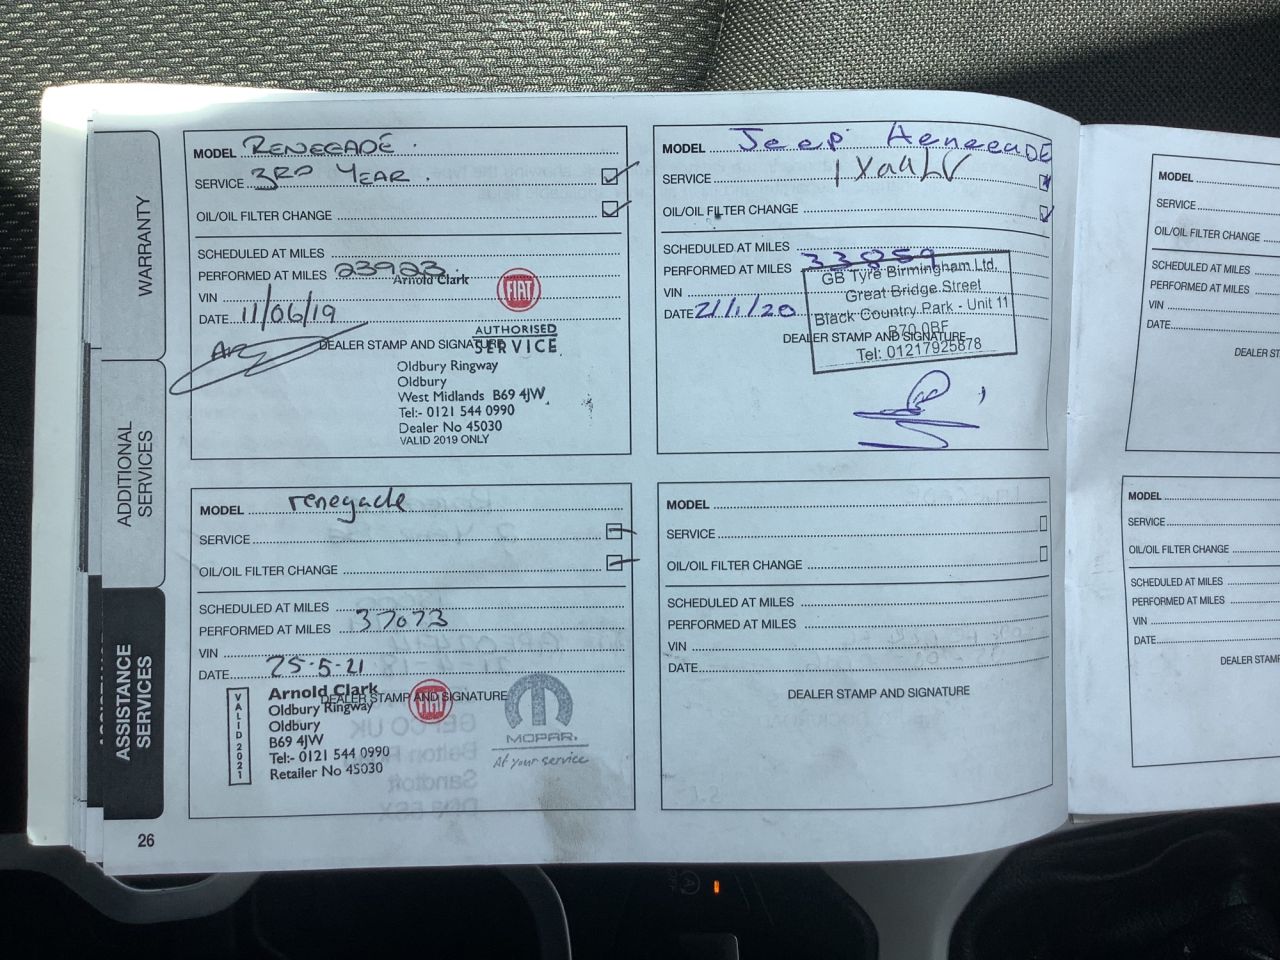 WARRANTY
ADDITIONAL SERVICES
ASSISTANCE SERVICES
MODEL RENEGADE.
SERVICE 3RD YEAR.
OIL/OIL FILTER CHANGE
SCHEDULED AT MILES
PERFORMED AT MILES 23923.
Arnold Clark
FIAT
VIN
DATE 11/06/19
AUTHORISED
DEALER STAMP AND SIGNATURE
SERVICE
Oldbury Ringway
Oldbury
West Midlands B69 4JW
Tel:- 0121 544 0990
Dealer No 45030
VALID 2019 ONLY
MODEL Jeep
SERVICE
OIL/OIL FILTER CHANGE
SCHEDULED AT MILES
PERFORMED AT MILES 33859
VIN
DATE 21/1/20
GB Tyre Birmingham Ltd.
Great Bridge Street
Black Country Park - Unit 11
B70 0BF
DEALER STAMP AND SIGNATURE
Tel: 01217925878
MODEL renegade
SERVICE
OIL/OIL FILTER CHANGE
SCHEDULED AT MILES
PERFORMED AT MILES 37073
VIN
DATE 25-5-21
VALID 2021
Arnold Clark
DEALER STAMP AND SIGNATURE
FIAT
Oldbury Ringway
Oldbury
B69 4JW
Tel:- 0121 544 0990
Retailer No 45030
MOPAR.
At your service
MODEL
SERVICE
OIL/OIL FILTER CHANGE
SCHEDULED AT MILES
PERFORMED AT MILES
VIN
DATE
DEALER STAMP AND SIGNATURE
26
MODEL
SERVICE
OIL/OIL FILTER CHANGE
SCHEDULED AT MILES
PERFORMED AT MILES
VIN
DATE
MODEL
SERVICE
OIL/OIL FILTER CHANGE
SCHEDULED AT MILES
PERFORMED AT MILES
VIN
DATE
DEALER STAMP